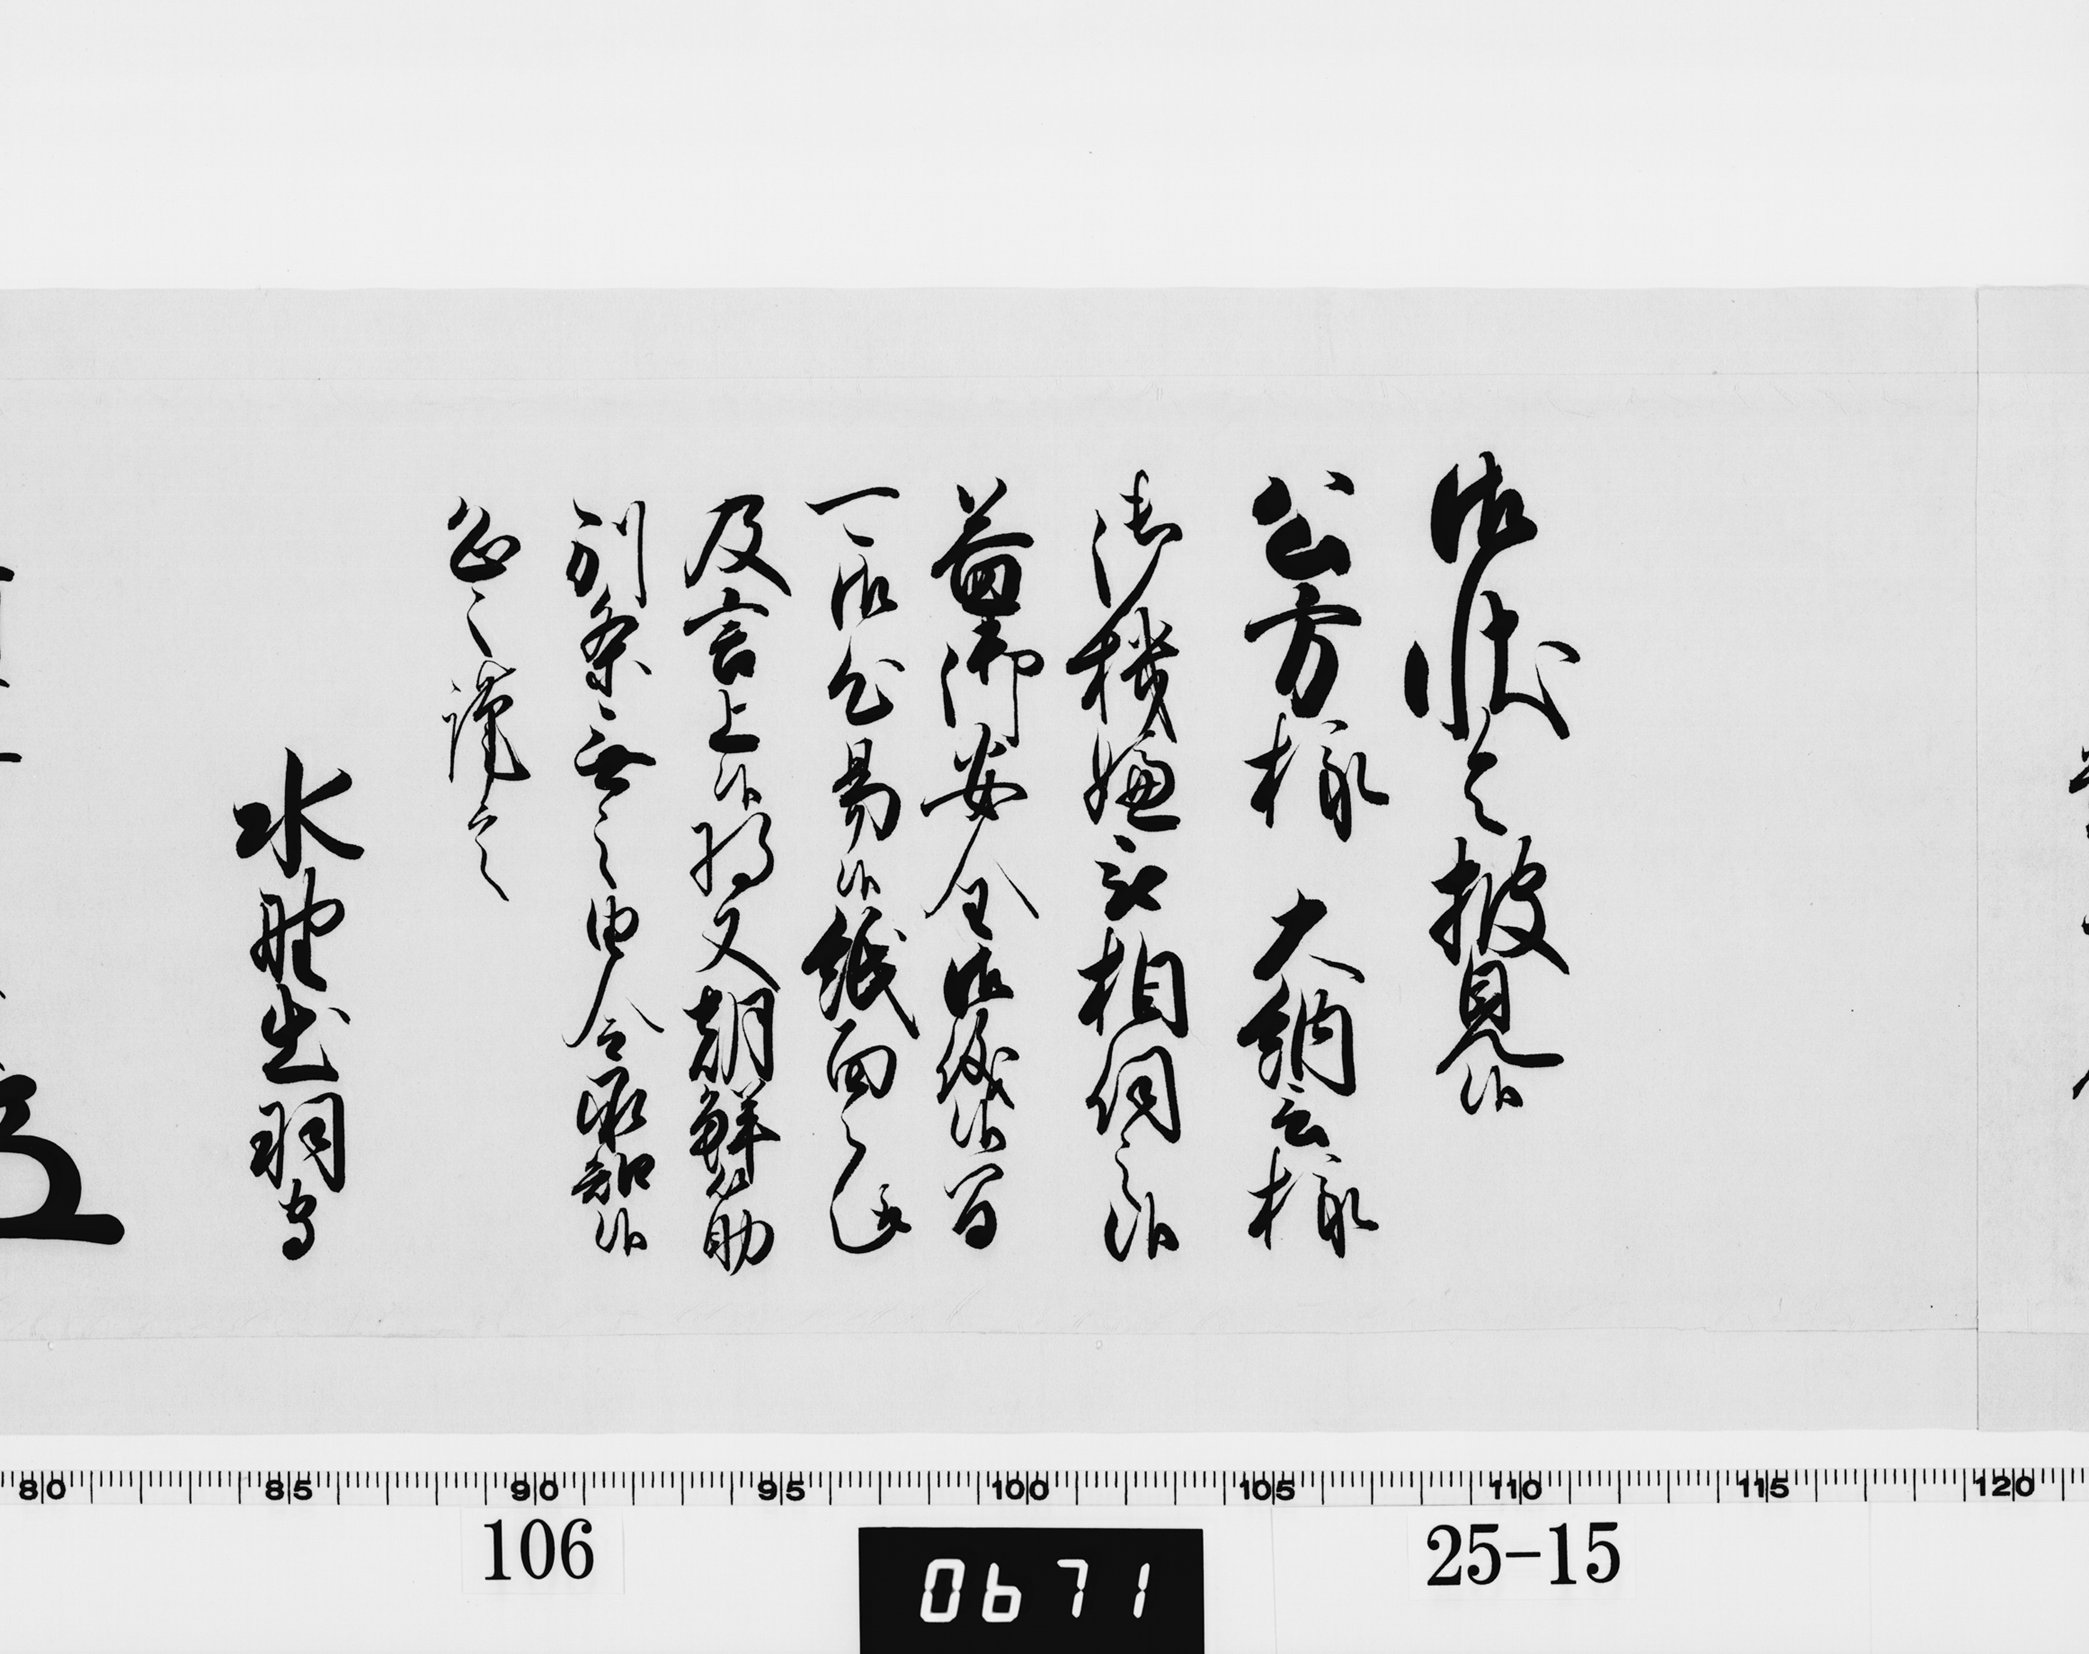 御状令披見候
公方様 大納言様
御機嫌被相伺之候
益御安全御儀候間
可御心易候紙面之趣
及言上候将又朝鮮筋
別条無之由令承知候
恐々謹言
水野出羽守
80 85 90 95 100 105 110 115 120
106
0671
25-15